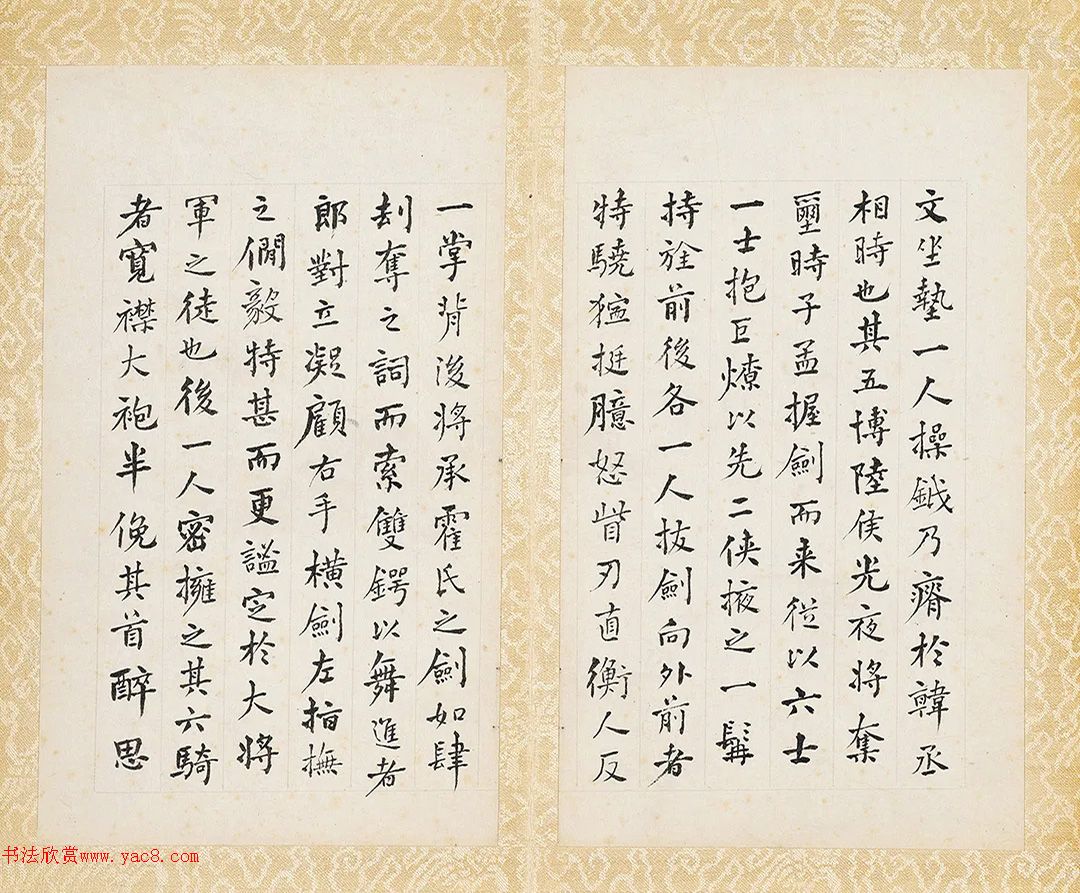 文坐執一人操鉞乃癠於韓丞
相時也其五博陸侯光夜將奪
璽時子孟握劍而来從以六士
一士抱巨燎以先二俠掖之一髯
持旌前後各一人拔劍向外前者
特驍猛挺臆怒眥刃直衡人反
一掌背後將承霍氏之劍如肆
刦奪之詞而索雙鍔以舞進者
郎對立凝顧右手橫劍左指撫
之僩毅特甚而更謐定於大將
軍之徒也後一人密擁之其六騎
者寬襟大袍半俛其首醉思
书法欣赏www.yac8.com